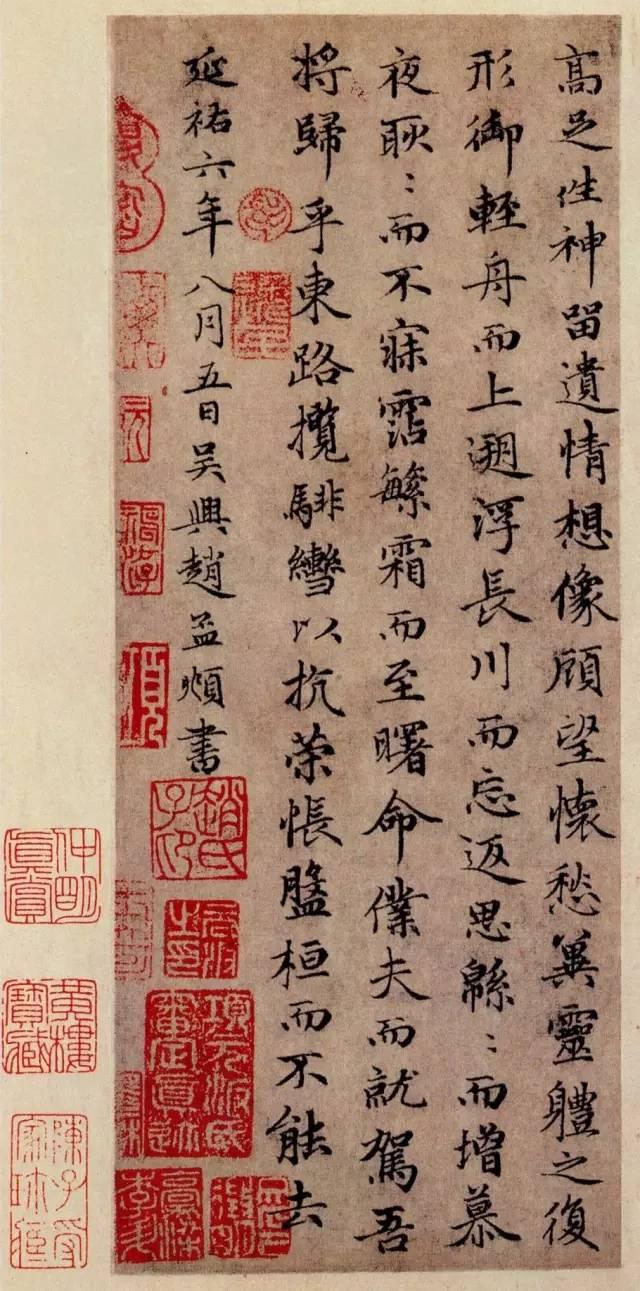 高足往神留遺情想像顧望懷愁兾靈體之復
形御輕舟而上遡浮長川而忘返思緜〻而增慕
夜耿〻而不寐霑繁霜而至曙命僕夫而就駕吾
將歸乎東路攬騑轡以抗策悵盤桓而不能去
延祐六年八月五日吳興趙孟頫書
項元汴氏審定真跡
陳子受家珍藏